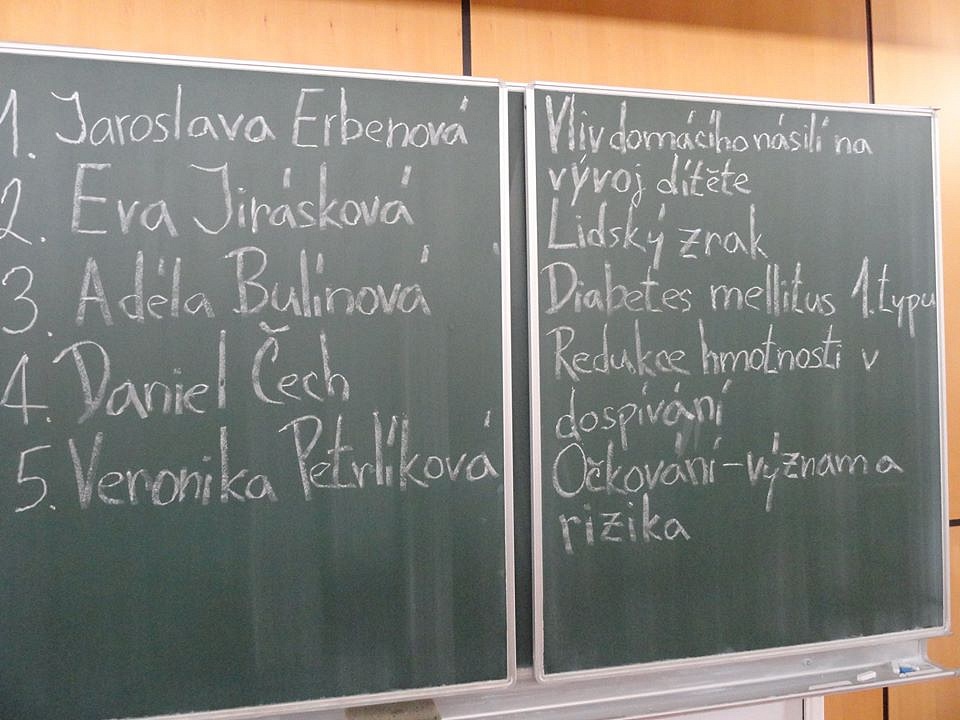 1. Jaroslava Erbenová
2. Eva Jirásková
3. Adéla Bulínová
4. Daniel Čech
5. Veronika Petrlíková
Vliv domácího násilí na
vývoj dítěte
Lidský zrak
Diabetes mellitus 1. typu
Redukce hmotnosti v
dospívání
Očkování - význam a
rizika